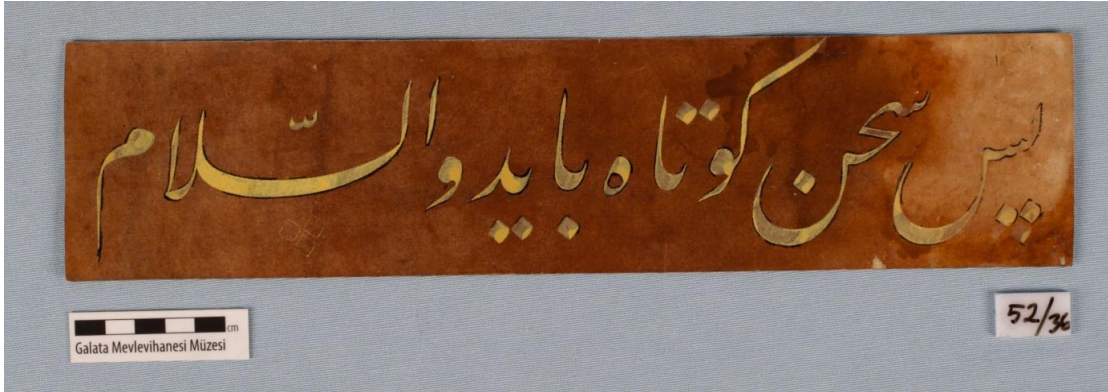 پس سخن کوتاه باید والسّلام
Galata Mevlevihanesi Müzesi
cm
52/36